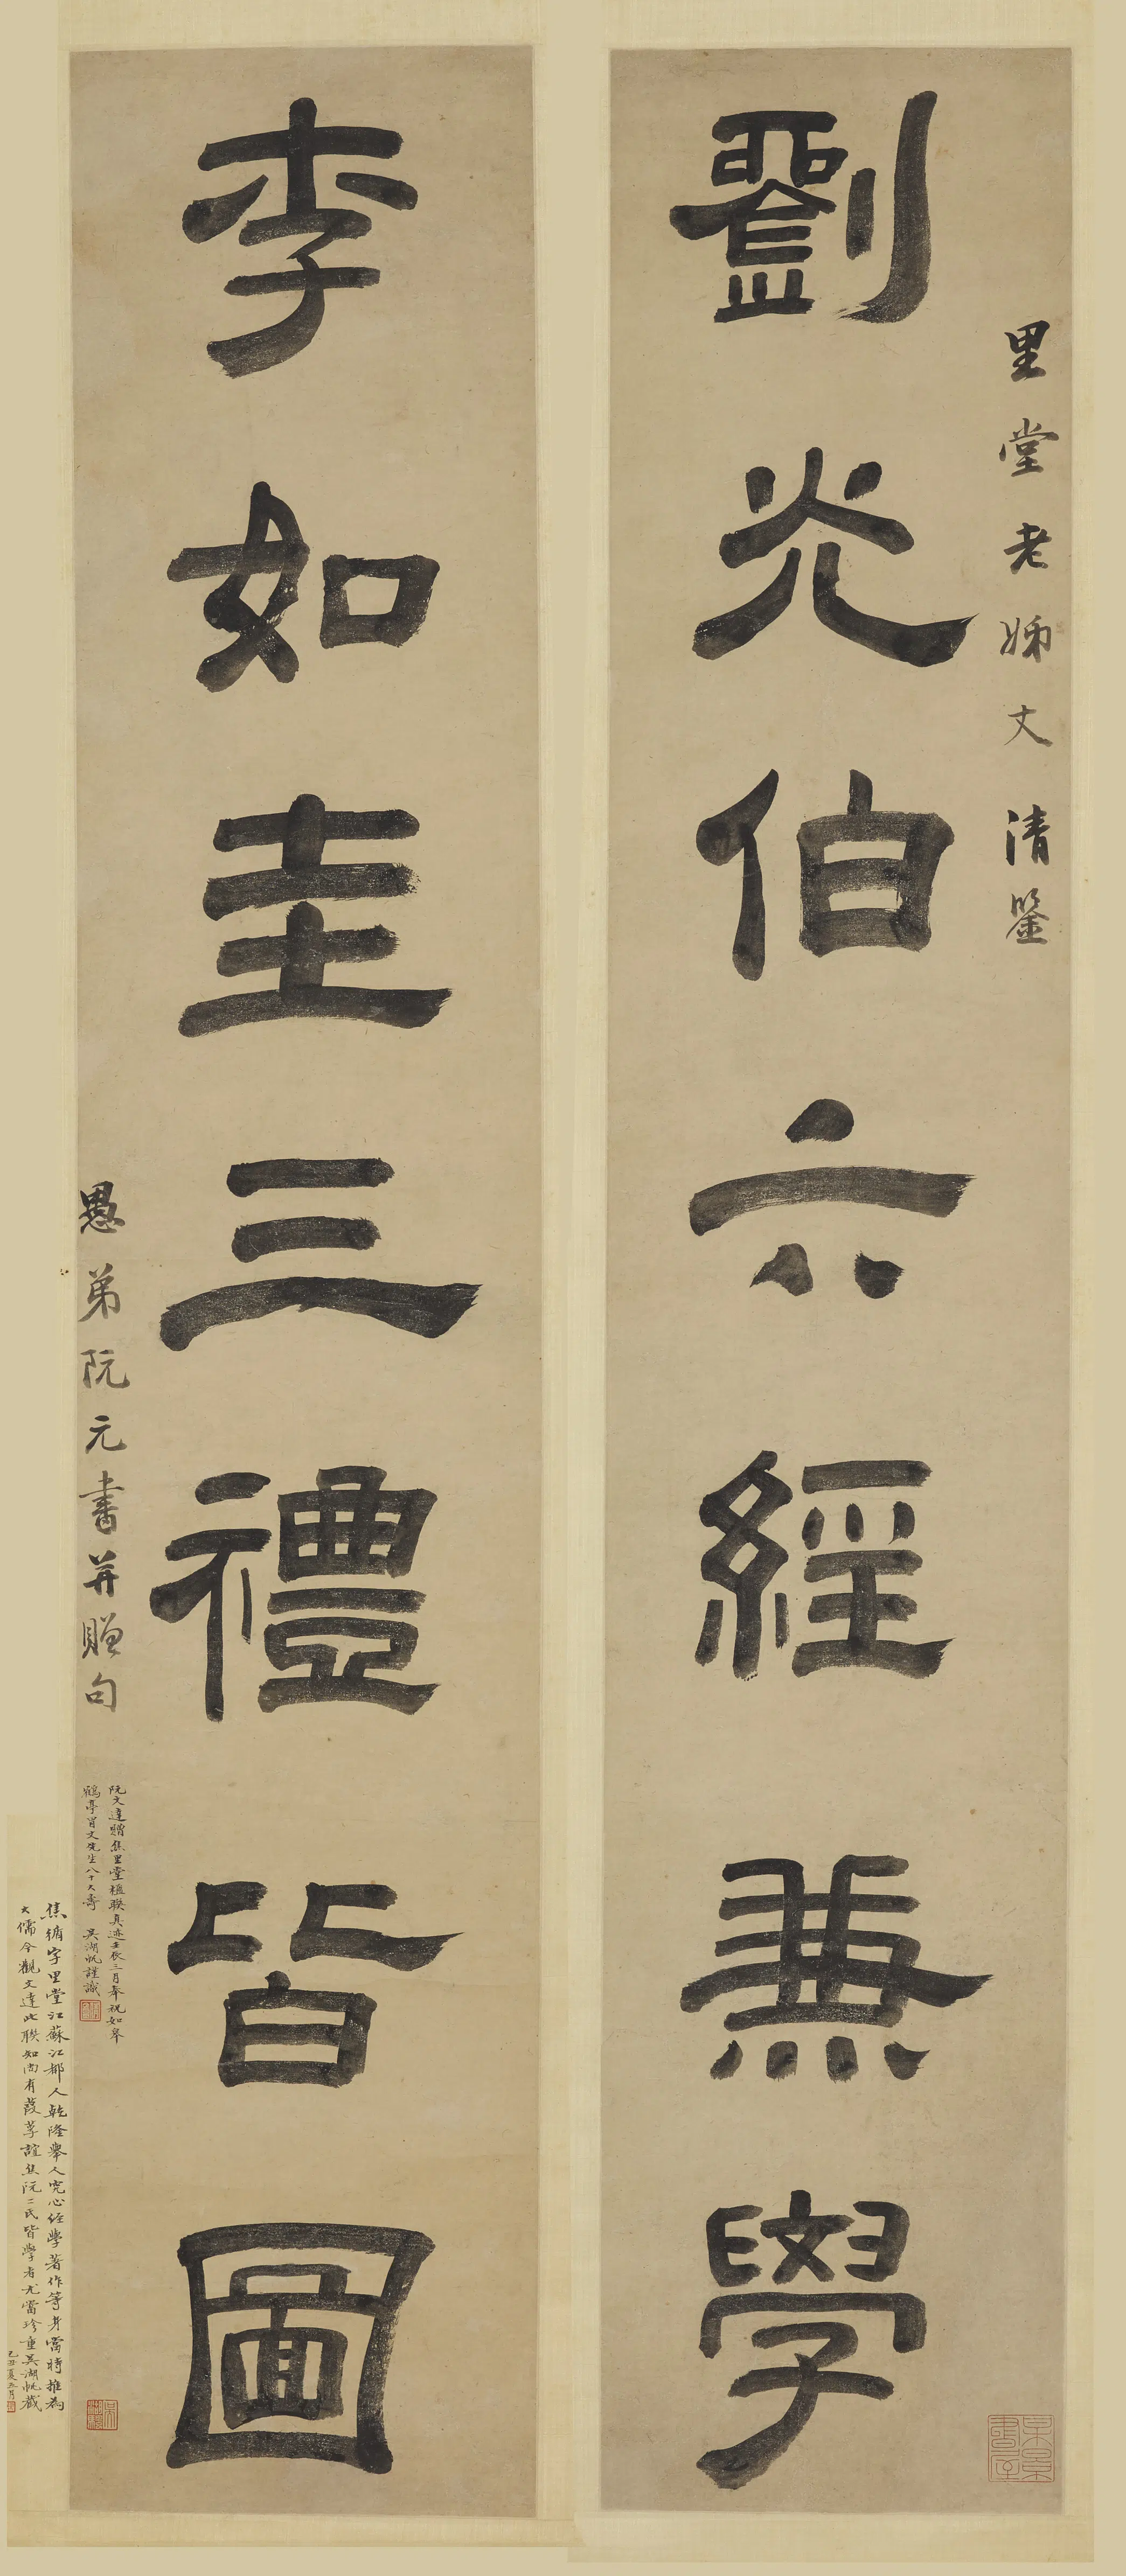 里堂老姊丈清鑒
劉光伯六經兼學
某景書屋
李如圭三禮皆圖
愚弟阮元書并贈句
阮文達贈焦里堂楹聯真迹壬辰三月奉祝如皋
鶴亭冒丈先生八十大壽 吳湖帆謹識
焦循字里堂江蘇江都人乾隆舉人究心經學著作等身當時推為
大儒今觀文達此聯知尚有葭莩誼焦阮二氏皆學者尤當珍重吳湖帆識
己丑夏五月